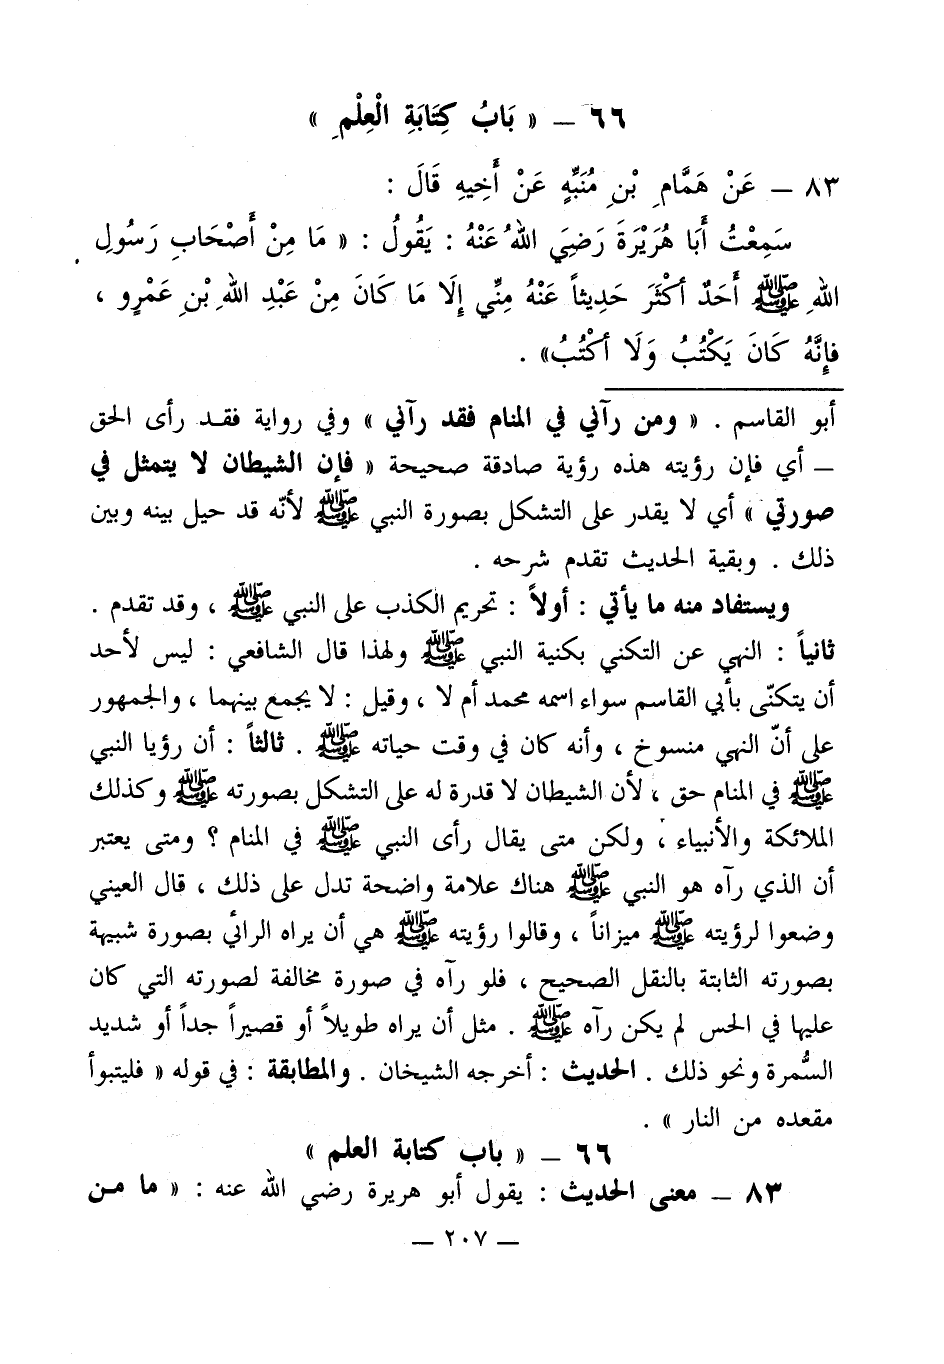 ٦٦ ــ « بَابُ كِتَابَةِ الْعِلْمِ »
٨٣ ــ عَنْ هَمَّامِ بْنِ مُنَبِّهٍ عَنْ أَخِيهِ قَالَ :
سَمِعْتُ أَبَا هُرَيْرَةَ رَضِيَ اللهُ عَنْهُ : يَقُولُ : « مَا مِنْ أَصْحَابِ رَسُولِ
اللهِ ﷺ أَحَدٌ أكْثَرَ حَدِيثاً عَنْهُ مِنِّي إِلَا مَا كَانَ مِنْ عَبْدِ اللهِ بْنِ عَمْرٍو ،
فإِنَّهُ كَانَ يَكْتُبُ وَلَا أكْتُبُ» .
أبو القاسم . « ومن رآني في المنام فقد رآني » وفي رواية فقد رأى الحق
ــ أي فإن رؤيته هذه رؤية صادقة صحيحة « فإن الشيطان لا يتمثل في
صورتي » أي لا يقدر على التشكل بصورة النبي ﷺ لأنّه قد حيل بينه وبين
ذلك . وبقية الحديث تقدم شرحه .
ويستفاد منه ما يأتي : أولاً : تحريم الكذب على النبي ﷺ ، وقد تقدم .
ثانياً : النهي عن التكني بكنية النبي ﷺ ولهذا قال الشافعي : ليس لأحد
أن يتكنّى بأبي القاسم سواء اسمه محمد أم لا ، وقيل : لا يجمع بينهما ، والجمهور
على أنّ النهي منسوخ ، وأنه كان في وقت حياته ﷺ . ثالثاً : أن رؤيا النبي
ﷺ في المنام حق ، لأن الشيطان لا قدرة له على التشكل بصورته ﷺ وكذلك
الملائكة والأنبياء ، ولكن متى يقال رأى النبي ﷺ في المنام ؟ ومتى يعتبر
أن الذي رآه هو النبي ﷺ هناك علامة واضحة تدل على ذلك ، قال العيني
وضعوا لرؤيته ﷺ ميزاناً ، وقالوا رؤيته ﷺ هي أن يراه الرائي بصورة شبيهة
بصورته الثابتة بالنقل الصحيح ، فلو رآه في صورة مخالفة لصورته التي كان
عليها في الحس لم يكن رآه ﷺ . مثل أن يراه طويلاً أو قصيراً جداً أو شديد
السُّمرة ونحو ذلك . الحديث : أخرجه الشيخان . والمطابقة : في قوله « فليتبوأ
مقعده من النار » .
٦٦ ــ « باب كتابة العلم »
٨٣ ــ معنى الحديث : يقول أبو هريرة رضي الله عنه : « ما من
ــ ٢٠٧ ــ